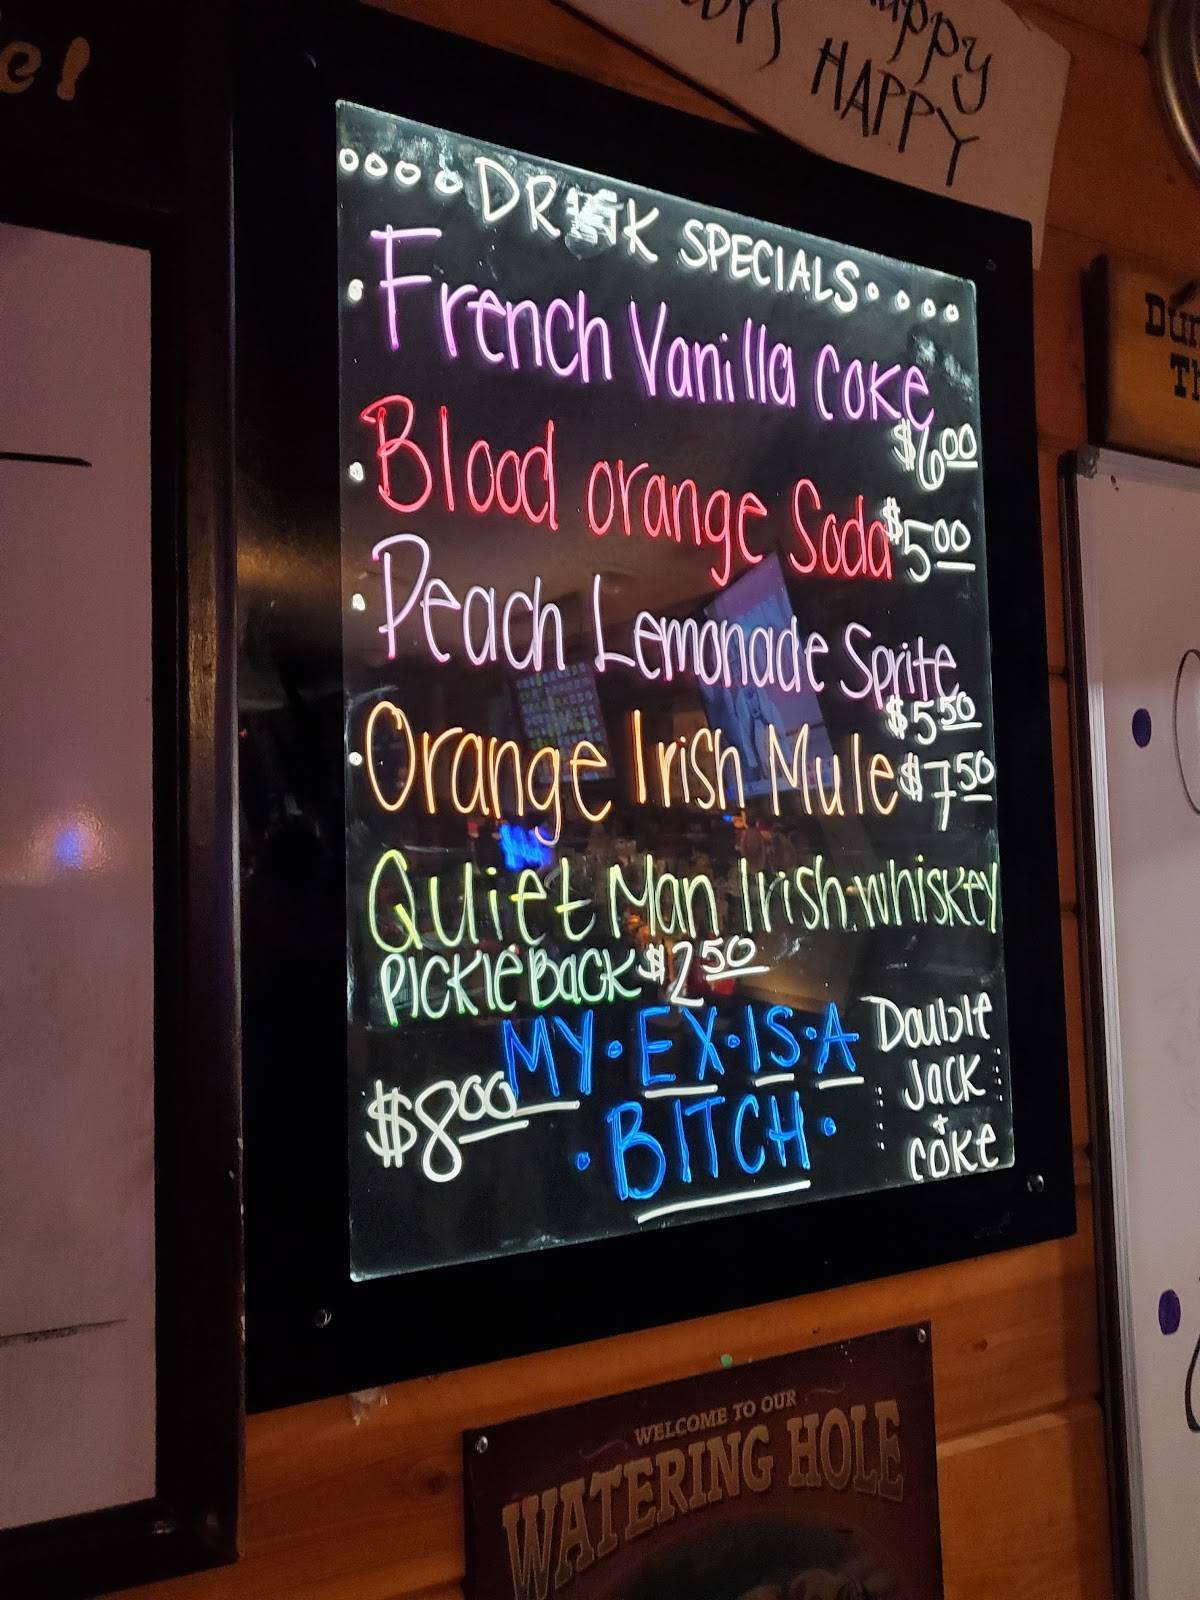 e!
Happy
HAPPY
DRINK SPECIALS
French Vanilla Coke
$6.00
Blood orange Soda $5.00
Peach Lemonade Sprite
$5.50
Orange Irish Mule $7.50
Quiet Man Irish Whiskey
PICKLE BACK $2.50
MY·EX·IS·A
BITCH
$8.00
Double
Jack
+
Coke
WELCOME TO OUR
WATERING HOLE